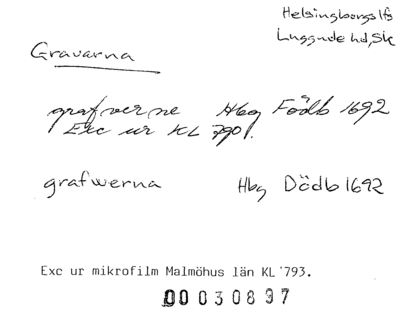 Helsingborgs lfs
Luggude hd, Sk
Gravarna
grafverne Hbg Födb 1692
Exc ur KL 790.
grafwerna Hbg Dödb 1692
Exc ur mikrofilm Malmöhus län KL 793.
00030897